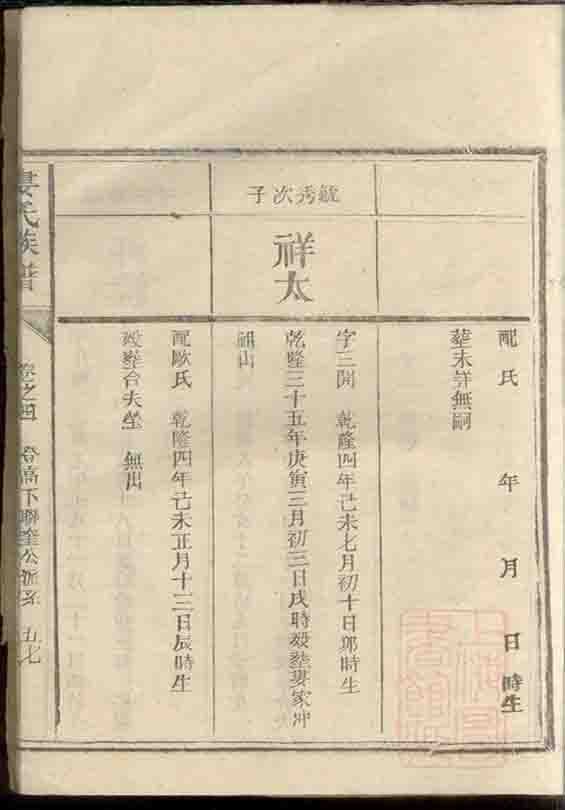 配氏 年 月 日 時生
葬未詳無嗣
毓秀次子
祥太
字三開 乾隆四年己未七月初十日卯時生
乾隆三十五年庚寅三月初三日戌時殁葬婁家冲
祖山
配歐氏 乾隆四年己未正月十三日辰時生
殁葬合夫塋 無出
婁氏族譜
卷之四 登高下聯奎公派系 五七